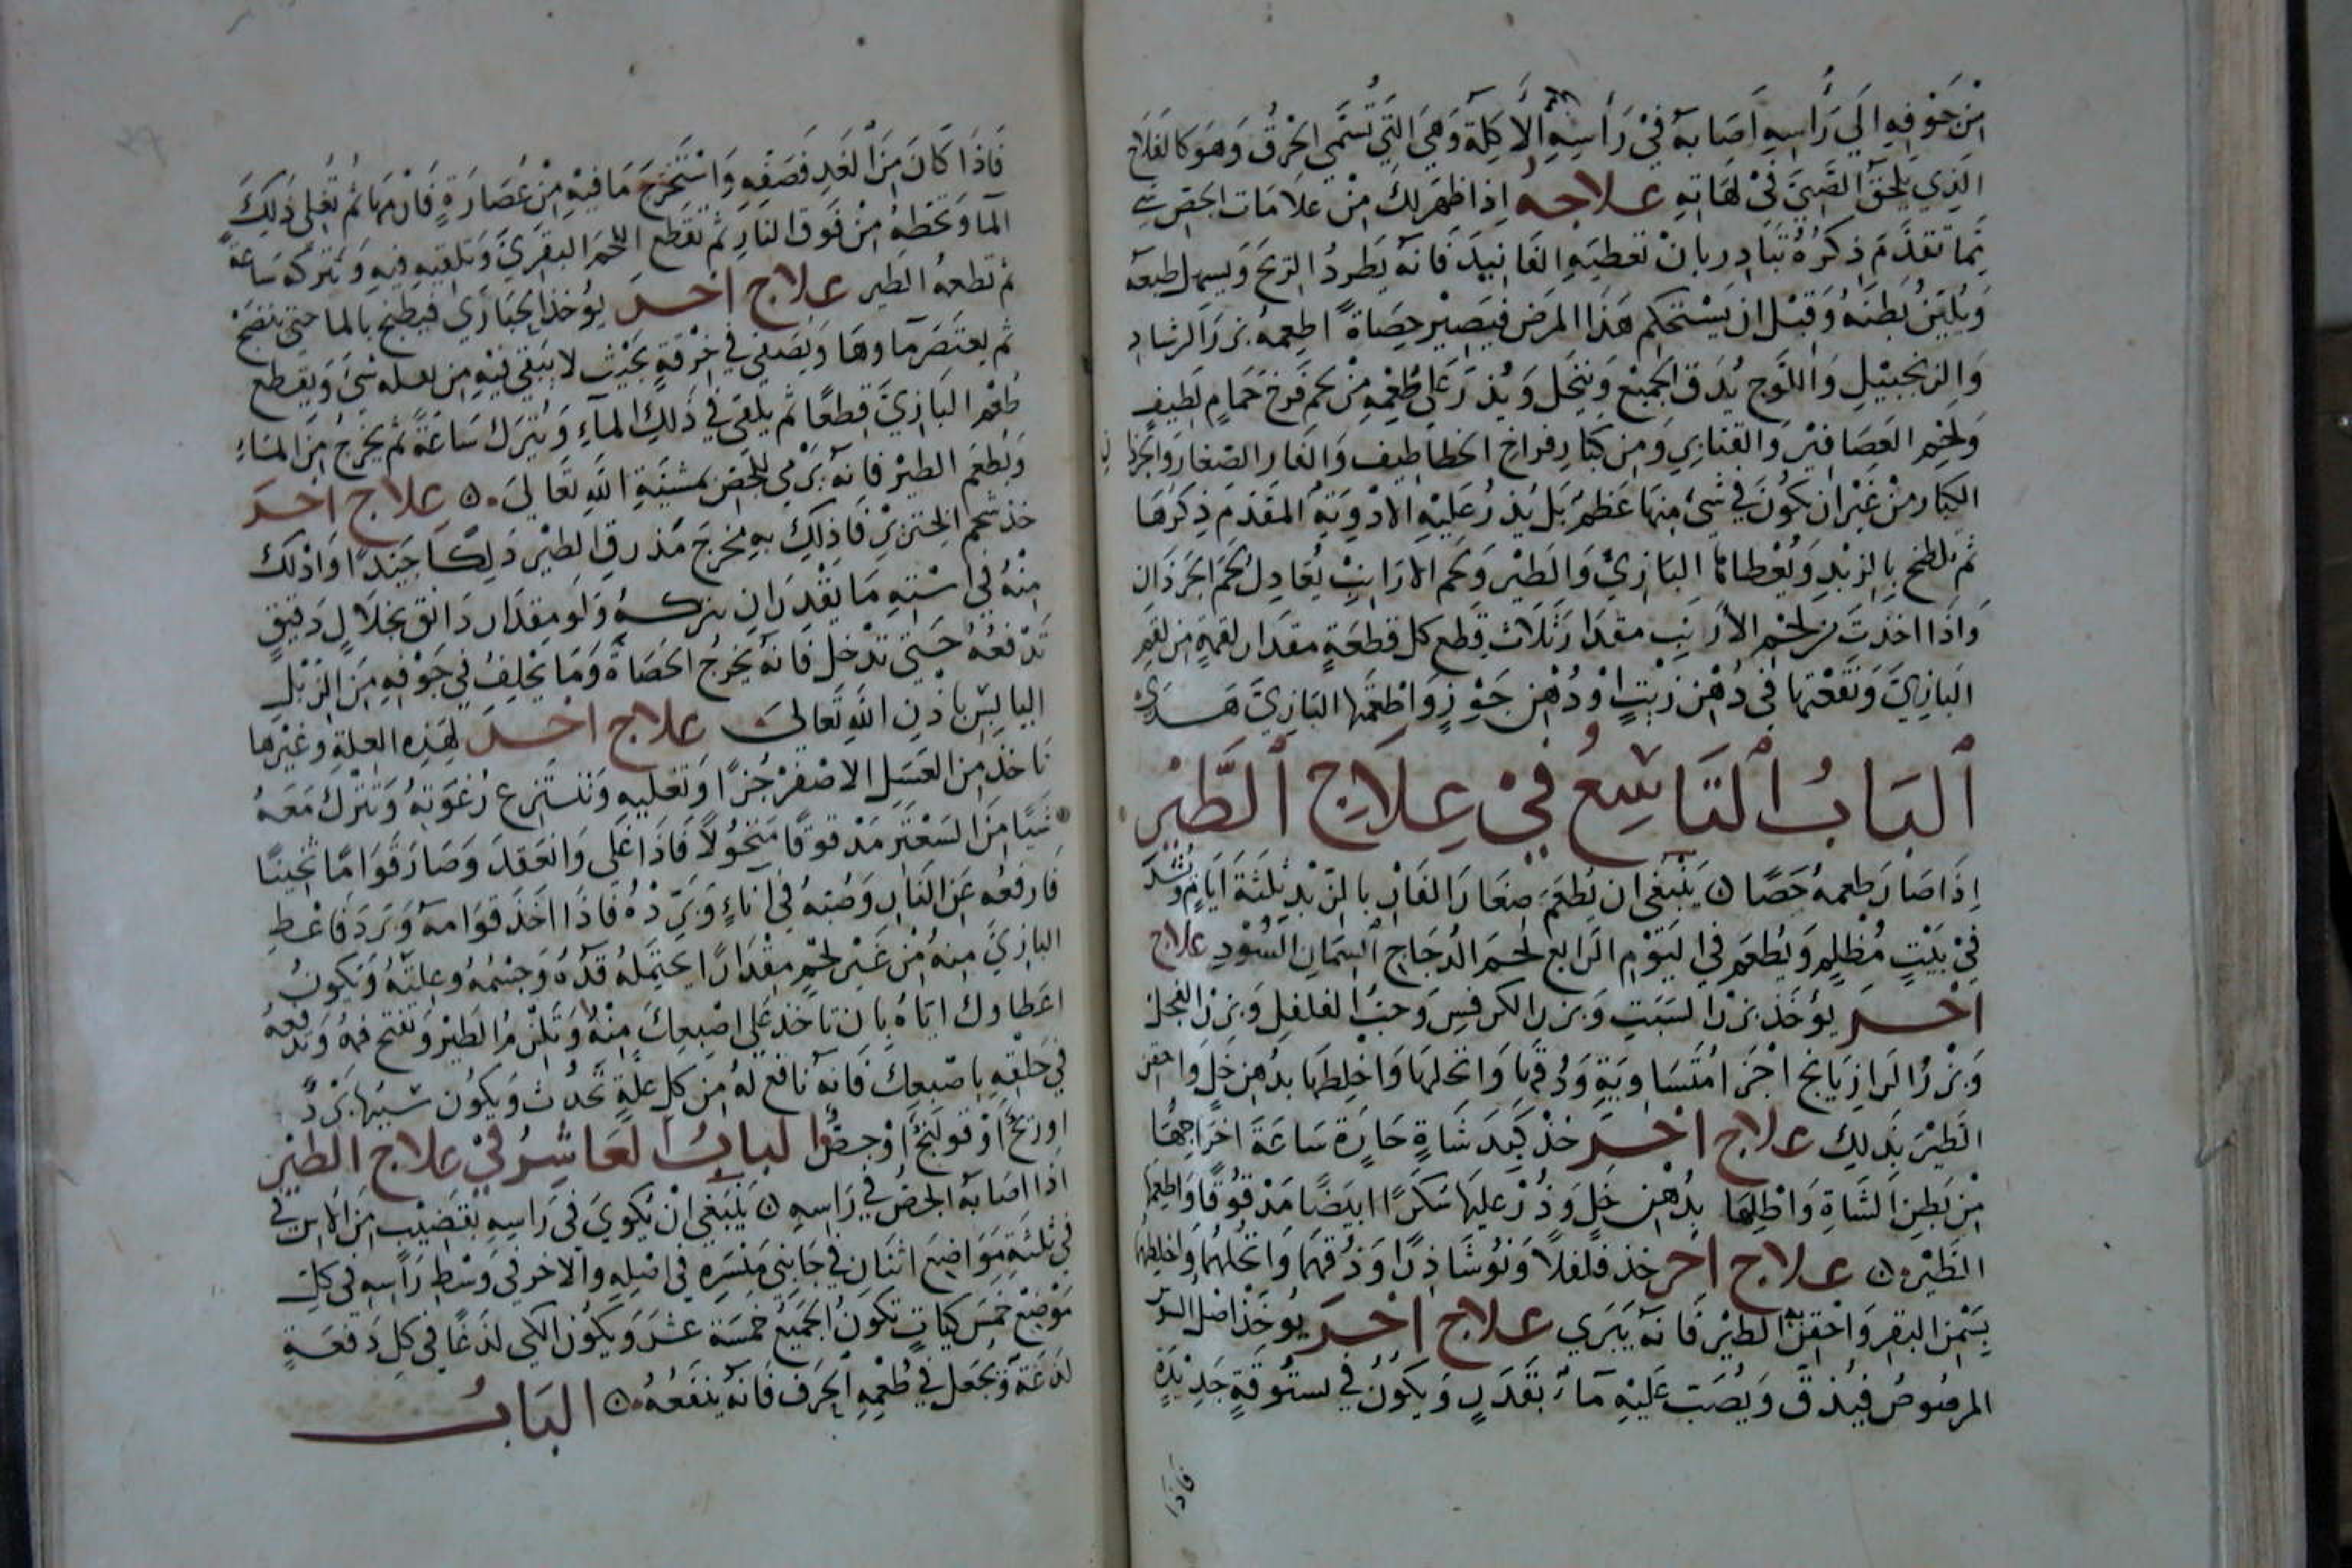 مِنْ جَوْفِهِ الَى رَأْسِهِ اَصَابه فِيْ رَأْسِهِ الْأَكِلَةُ وَهِيَ الَّتِي تُسَمَّى الْحَرْقُ وَهُوَ كَالْقلَاع
الَّذِي يَلْحَقُ الصَّبِيَّ فِيْ لَهَاتِهِ علاجه اِذَا ظَهَرَ لَكَ مِنْ عَلَامَات الجص شي
مِمَّا تقَدَّمَ ذِكرُهُ تُبَادِر بِاَنْ تعْطيَهِ الفَانِيدَ فَانهُ يَطْردُ الرِّيحَ وَيسهل طبعه
وَيُلَيِّنُ بَطنَهُ وَقَبْل ان يَسْتحكم هَذَا المرَض فيَصِيْر حِصَاة اطعمهُ بزرَ الرشادِ
وَالزنجبيْلِ وَاللَّوج يُدَق الجميْع وَينخَل وَيُذرّ عَلَى طُعْمِهِ مِنْ لحم فَرخ حَمَامٍ لطيفٍ
وَلحمِ العَصَافيْر وَالقنابري وَمِن كبَارِ فراخ الخطاطيف وَالفار الصّغار وَالجرذان
الكبَار مِنْ غَيْر ان يَكُونَ فِي شَيْء مِنهَا عَظْم بَل يُذرّ عَليْهِ الادْويَةُ المقَدّم ذِكرُهَا
ثم يلطخ بِالزبْدِ وَيُعْطا البَازيْ وَالطَيْر وَلحم الارَانب يُعَادِل لَحْمَ الجرَذان
وَاذَا اخَذتَ مِن لحْم الأرَانِب مقدَار ثَلَاث قِطَع كل قطعَةٍ مقدَار لقمةٍ مِن لقم
البَازِيّ وَنَقَعْتهَا فِى دُهْن زَيْتٍ اوْ دُهْن جَوْزٍ وَاطعمهَا البَازِيَّ هَــدي
اَلبَابُ اَلتَاسِعُ فِيْ عِلَاجِ اَلطَّيْرِ
اِذَا صَارَ طعمهُ حَصًا ن يَنْبَغى ان يُطْعَمَ صغَارَ الفَارِ بِالزّبْدِ ثَلثَةَ ايَامٍ وَيُشَدّ
فِيْ بَيْتٍ مُظْلِمٍ وَيُطْعَم فِي اليَوْم الرَابع لحمَ الدُجَاج السمَانِ السُوْدِ علاج
اخــر يُؤخَذ بزرُ السَبَتِ وَبزر الكرفسِ وَحَبّ الفلفل وَبزرُ الفجل
وَبزرُ الرازيَانج اجْزَا مُتَسَاويَةٍ وَدُقهَا وَانخلهَا وَاخْلِطهَا بدُهن خَل وَاحقن
الطَيْرَ بذلِك علاج اخــر خُذْ كَبِدَ شَاةٍ حَارّة سَاعَةَ اخرَاجهَا
مِنْ بَطنِ الشَاةِ وَاطلِهَا بِدُهْن خَلٍ وَذُرّ عليهَا سُكرًا ابيضًا مَدْقُوقًا وَاطعمهَا
الطَيْرَ ن علاج اخر خذ فلفلًا وَنُوشَاذِرًا وَدُقهَمَا وَانخلهُمَا وَاخلطهُمَا
بِسَمْن البقرِ وَاحْقِنْ به الطيْر فَانهُ يَبرَى علاج اخــر يُوخذ اصْل
المرصُوصُ فيُدَقّ وَيُصَبّ عَليْهِ مَآءٌ بقَدَرٍ وَيَكُونُ فِي بستُوقةٍ جَدِيْدَةٍ
فاذا
فَاذَا كَانَ مِنَ الْغَدِ فَصَفِّهِ وَاسْتَخْرِجَ مَا فيْهِ مِنْ عُصَارَةٍ فَارْمهَا ثُم تُغْلِى ذَلِكَ
المآ وَتحُطهُ مِنْ فَوق النار ثُمّ تقطع اللحْمَ البقرَيّ وَتلقيْهِ فِيهِ وَتَتركهُ سَاعةً
ثم تطعمهُ الطير علاج اخــر يُؤخذ الخبَازَى فيطبخ بالما حتى ينضج
ثم يعتصَر مآوهَا وَيصَفى فِي خِرْقةٍ بحَيْث لا يَبْقى فيْهِ مِن ثفله شيَ وَيقطع
طُعْمُ البَازيّ قِطَعًا ثُم يلقى فِي ذَلِكَ المآءِ وَيُترَك سَاعَةً ثُم يخرجُ مِنَ المَاءِ
وَيُطعَم الطيْر فَانه يرْمِي الجص بمشئَةِ الله تعَالى ن علاج اخــر
خذ شحم الخنزيْر فَادْلك بهِ مخرجَ مذرق الطيْر دَلكًا جَيّدًا وَادْلك
مِنْهُ فِي اسْتِهِ مَا يَقْدِرَ ان يتركهُ وَلَو مِقدَار دَانق بخلَالٍ دَقيْقٍ
تَدْفعُهُ حَتى تدْخل فَانهُ يخرجُ الحصَاةُ وَمَا يَخْلِفُ فِي جَوْفِهِ مِنَ الزبْلِ
اليَابِسِ بِاذنِ اللهِ تَعَالى علاج اخــر لِهَذِهِ العِلةِ وَغيْرهَا
تَاخذ مِن العَسَلِ الاصْفرْ جُزًا وَتغليهِ وَتنتزع رُغوَتَهُ وَتَتْرك مَعَهُ
شَيًا مِنَ السَعْتَر مَدْقوقًا مَنخُولًا فَاذا غلَى وَانعَقدَ وَصَارَ قوَامًا ثخينًا
فَارفعُه عَن النَارِ وَصُبّهُ فِي انَاءٍ وَبَرّدْهُ فَاذَا اخَذَ قوَامهُ وَبَرَدَ فَاعْطِ
البازيَّ منهُ مِنْ غَيْر لحْمٍ مِقْدَارًا يحتمَلهُ قدّهُ وَجسْمُهُ وعلتهُ وَيَكونُ
اعطاوك ايّاهُ بِان تاخذ عَلى اصْبعكَ مِنْهُ وَتَلْزمُ الطَيْر وَتفتح فمهُ وَتدْفعهُ
فِي حَلْقهِ باصْبِعِكَ فَانهُ نَافع لهُ مِن كل علّةٍ تحدُث وَيكُون سَببُهَا برْدً
اوريحً اوْقولَنجً اوْجصٌّ البابُ العَاشِرُ فِيْ علاج الطيْرِ
اذَا اصَابهُ الجصُّ فِي رَاسِهِ ن يَنبَغي انْ يُكوَي فِي رَاسهِ بقضيْبٍ مِنَ الاس فى
فِي ثلثةِ مَوَاضِعَ اثنان فِي جَانِبَيْ مَنْسَرِهِ فِي اصْلِهِ والاخر فِي وَسْطِ رَأسِهِ فِى كل
مَوْضِعْ خمَسُ كيَاتٍ تكون الجميعُ خمسَة عشَرَ وَيكُون الكى لذعًا فِى كل دَفعةٍ
لذعَةً وَيجعَل فِي طُعْمِهِ الحَرَف فَانهُ ينفعُهُ ن البَابُ